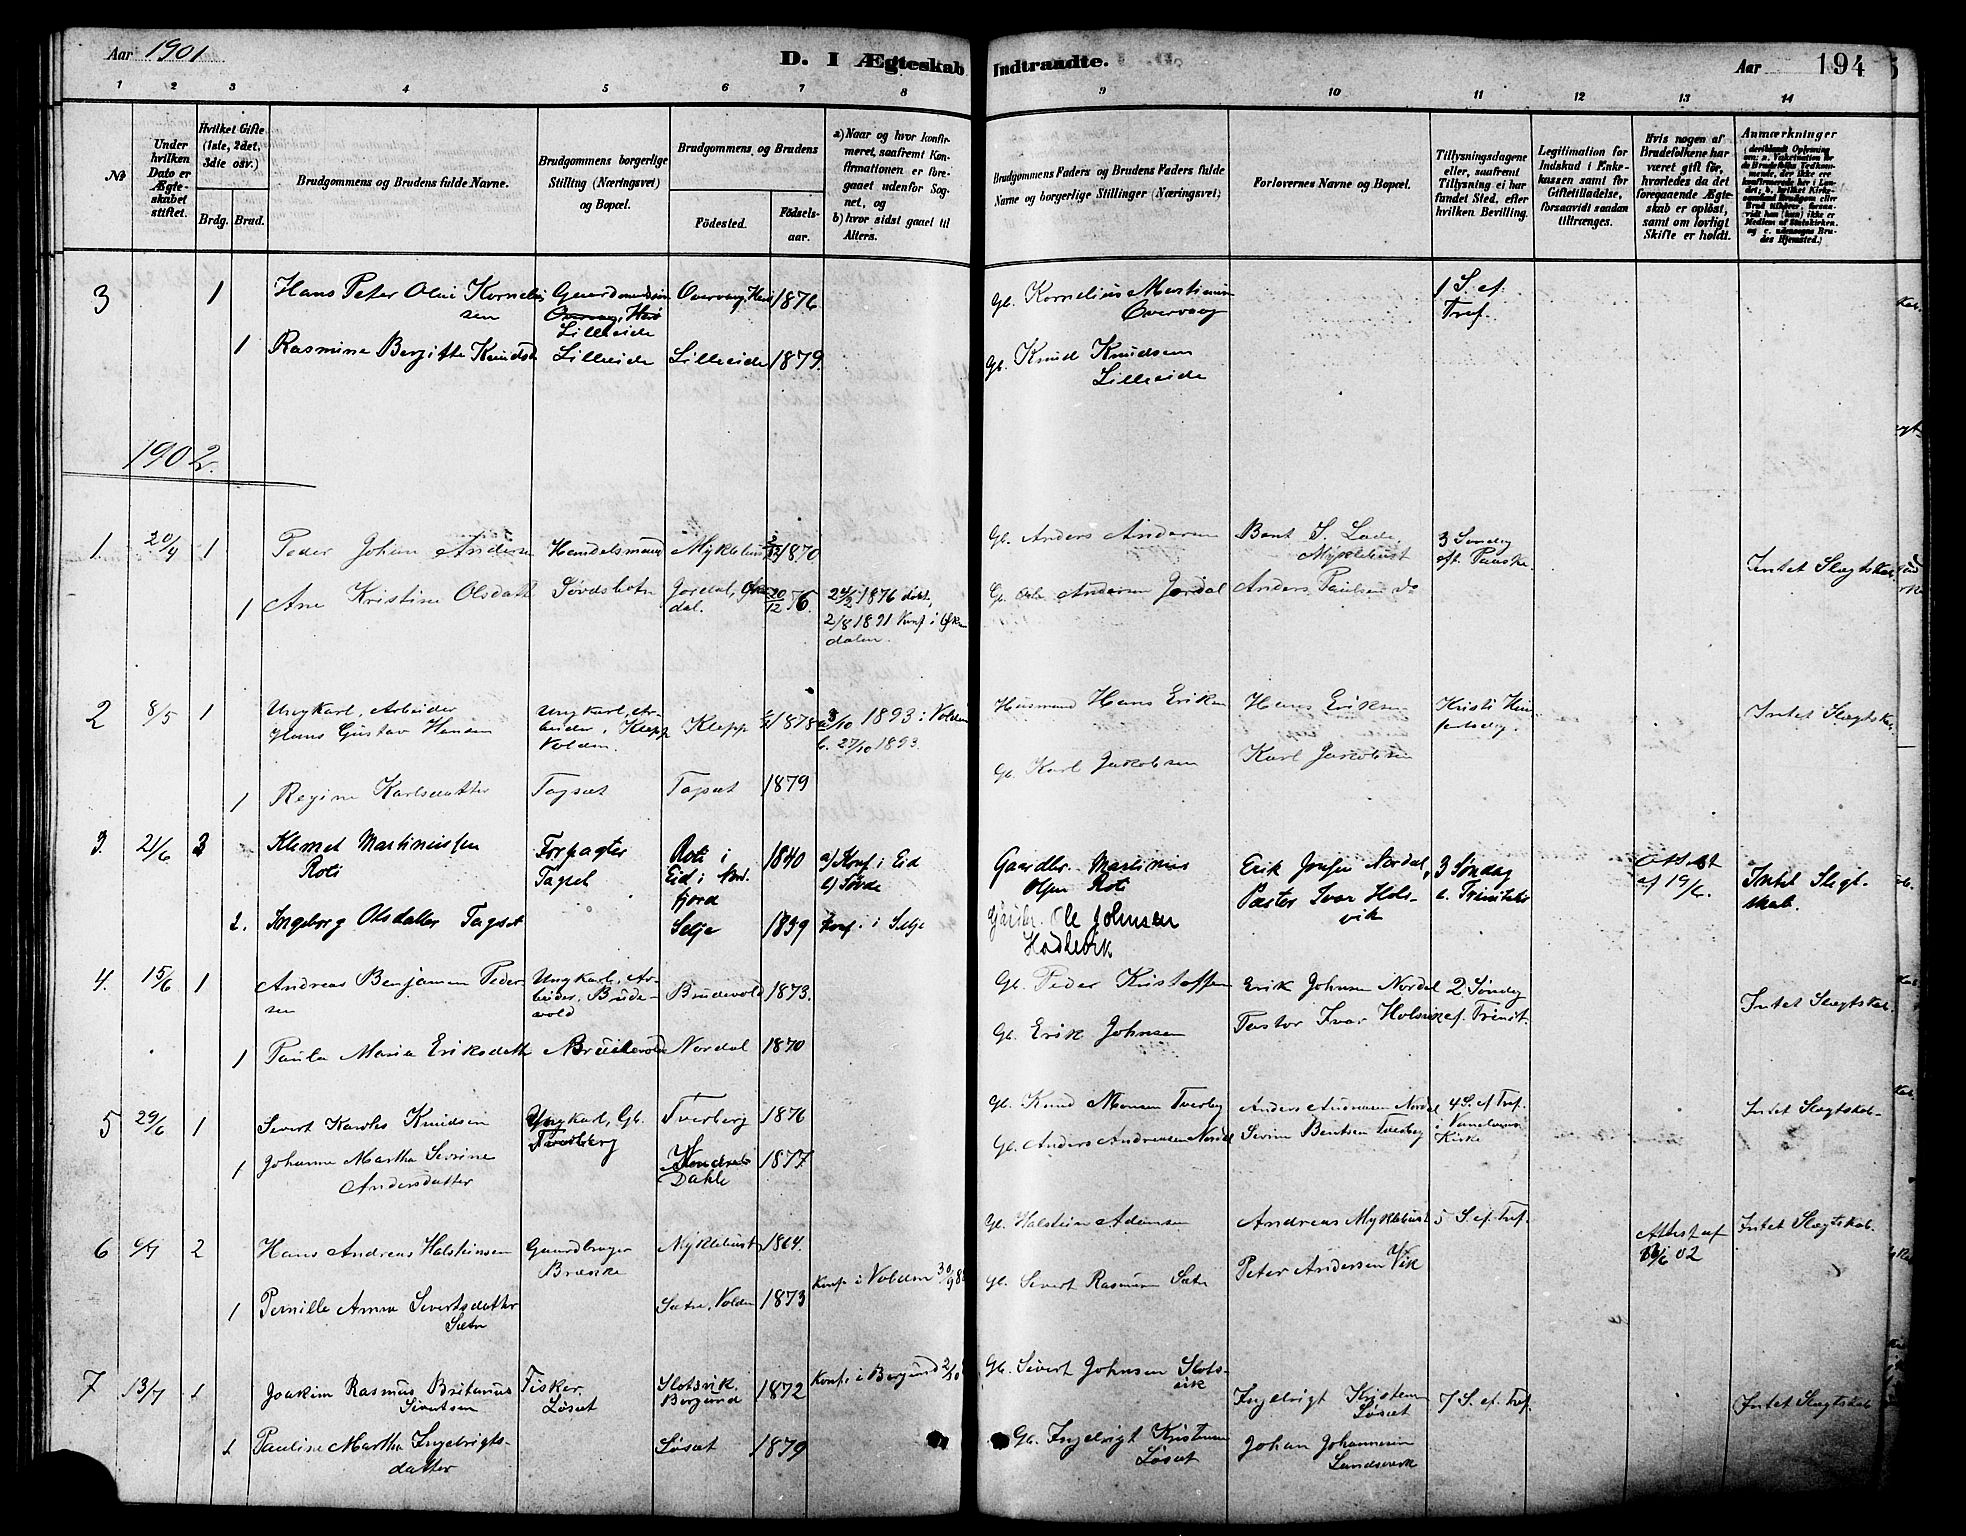 Aar 1901
D. I Ægteskab Indtraadte.
Aar
194
1 2 3 4 5 6 7 8 9 10 11 12 13 14
No
Under hvilken Dato er Ægteskabet stiftet.
Hvilket Gifte (1ste, 2det, 3die osv.)
Brdg. Brud.
Brudgommens og Brudens fulde Navne.
Brudgommens borgerlige Stilling (Næringsvei) og Bopæl.
Brudgommens og Brudens
Födested.
Födselsaar.
a) Naar og hvor konfirmeret, saafremt Konfirmationen er foregaaet udenfor Sognet, og
b) hvor sidst gaaet til Alters.
Brudgommens Faders og Brudens Faders fulde Navne og borgerlige Stillinger (Næringsvei)
Forlovernes Navne og Bopæl.
Tillysningsdagene eller, saafremt Tillysning ei har fundet Sted, efter hvilken Bevilling.
Legitimation for Indskud i Enkekassen samt for Giftetilladelse, forsaavidt saadan tiltrænges.
Hvis nogen af Brudefolkene har været gift för, hvorledes da det foregaaende Ægteskab er oplöst, samt om lovligt Skifte er holdt.
Anmærkninger
3 1 Hans Peter Oluf Kornelius
sen
Gaardmandssøn
Lilleeide
Overvaag, Herö 1876
Gb. Kornelius Martinus
Overvaag
1 S. ef.
Tref.
1 Rasmine Bergitte Knudsd Lilleeide Lilleeide 1879.
Gb. Knud Knudsen
Lilleeide
1902.
1. 20/4 1 Peder Johan Andersen Handelsmand Myklebust 1870
Gb. Anders Andersen
Bent S. Lade,
Myklebust
3 Søndag
eft. Paaske
Intet Slægtskab
1 Ane Kristine Olsdatt Søvdsbotn Jordal, Øksen
dal. 20/12 76.
24/2 1876 døbt,
2/8 1891 Konf i Øksen
dalen.
Gb. Ole Andersen Jordal Anders Paulsen do
2 8/5 1 Ungkarl, Arbeider
Hans Gustav Hansen
Ungkarl, Ar
beider, Klepp
Volden.
Klepp 1878
3/10 1893 i Volden
b. 27/10 1893.
Husmand Hans Eriksen
Hans Eriksen
Kristi Him
fartsdag.
Intet Slægtskab
1 Regine Karlsdatter Tagset Tagset 1879
Gb. Karl Jakobsen Karl Jakobsen
3. 21/6 2 Klemet Martinussen
Roti
Forpagter
Tagset
Roti i
Eid i Nord
fjord
1840
a/ Konf i Eid
b/ Søvde
Gaardbr. Martinus
Olsen Roti
Erik Jonsen Nordal,
Pastor Ivar Hols-
vik
3 Søndag
e. Trinitatis
Attest
af 19/6.
Intet Slegt-
skab.
2. Ingeborg Olsdatter Tagset Selje 1839 Konf. i Selje
Gaardbr. Ole Johnsen
Hoddevik
4. 15/6 1 Andreas Benjamin Peder
sen
Ungkarl, Ar-
beider, Brude-
vold
Brudevold 1873.
Gb. Peder Kristoffersen
Erik Johnsen Nordal 2 Søndag
Pastor Ivar Holsvik ef. Trinit.
Intet Slægtskab.
1 Paula Maria Eriksdatt Brudevold Nordal 1870
Gb. Erik Johnsen
5 29/6 1 Sivert Knudsen
Ungkarl, Gb.
Tverberg
Tverberg 1876
Gb. Knud Monsen Tverberg
Anders Andreasen Nordal 4 S. ef Tref.
i Vanelvens
Kirke
Intet Slægtskab.
1 Johanne Martha Sevrine
Andersdatter
Dahle 1877
Gb. Anders Andreasen Nordal Sevrin Bentsen Tverberg
6 6/7 2 Hans Andreas Halsteinsen Gaardbruger
Bræsike
Myklebust 1864.
Gb. Halstein Adamsen
Andreas Myklebust 5 S. ef. Tref.
Attest af
/6 02
Intet Slægtskab.
1 Pernille Anna Sivertsdatter
Sætre
Sætre, Volden 1873
Konf. i Volden 30/9 88
Gb. Sivert Rasmussen Sætre
Peter Andersen Vik
7 13/7 1 Joakim Rasmus Britanius
Sivertsen
Fisker
Løset
Slotsvik.
Borgund
1872
Konf. i Borgund 2/10
Gb. Sivert Johnsen Slots-
vik
Ingebrigt Kristensen
Løset
7 S. ef. Tref.
Intet Slægtskab
1 Pauline Martha Ingebrigts-
datter
Løset 1879
Gb. Ingebrigt Kristensen
Løset
Johan Johannesen
Landsverk